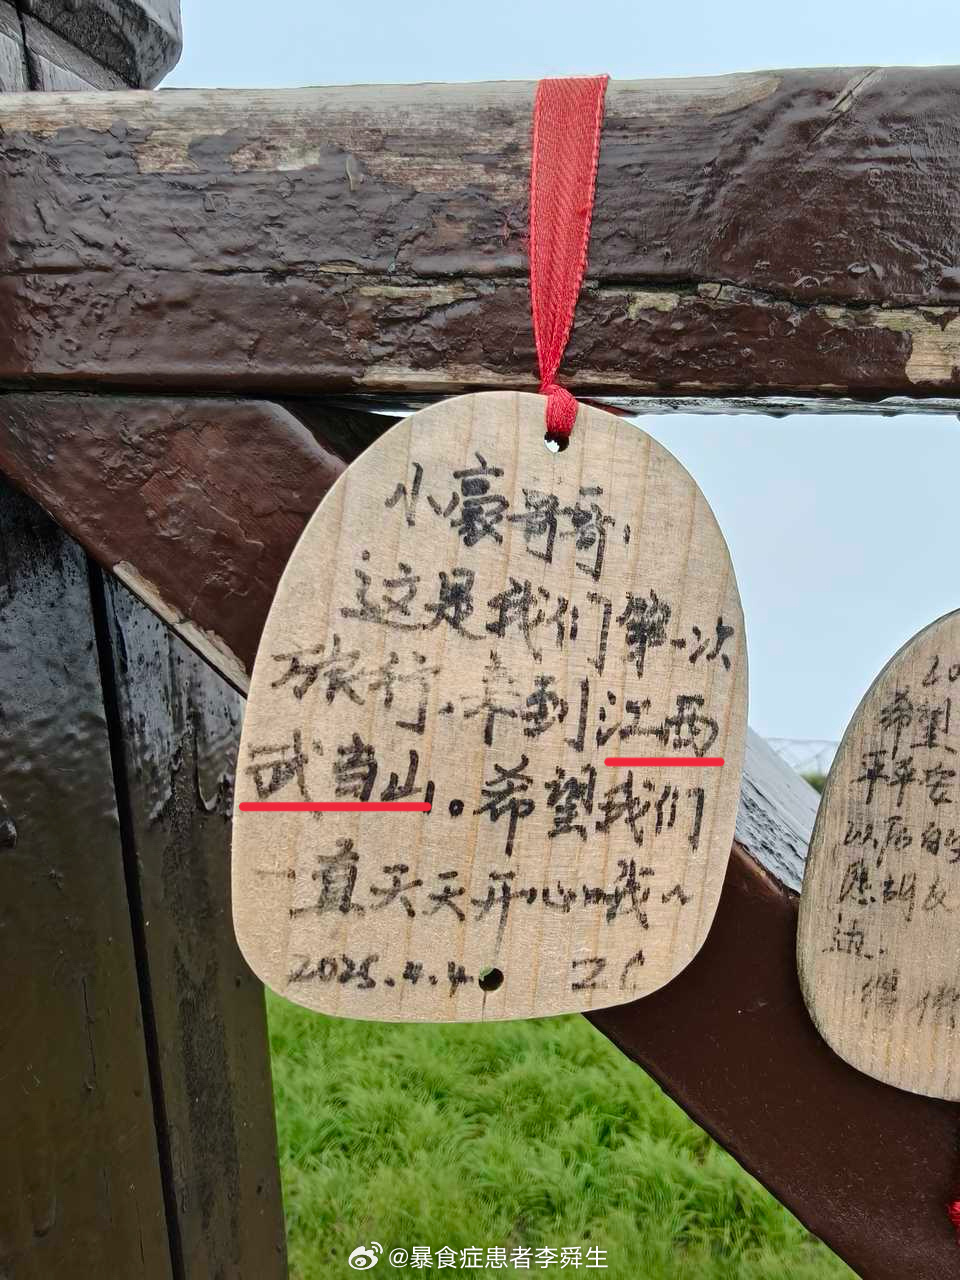 小豪哥哥：
这是我们第一次
旅行，来到江西
武当山。希望我们
一直天天开心哦~
2025.4.4 ZC
20
希望
平平安
以后的
愿胡友
边.
@暴食症患者李舜生